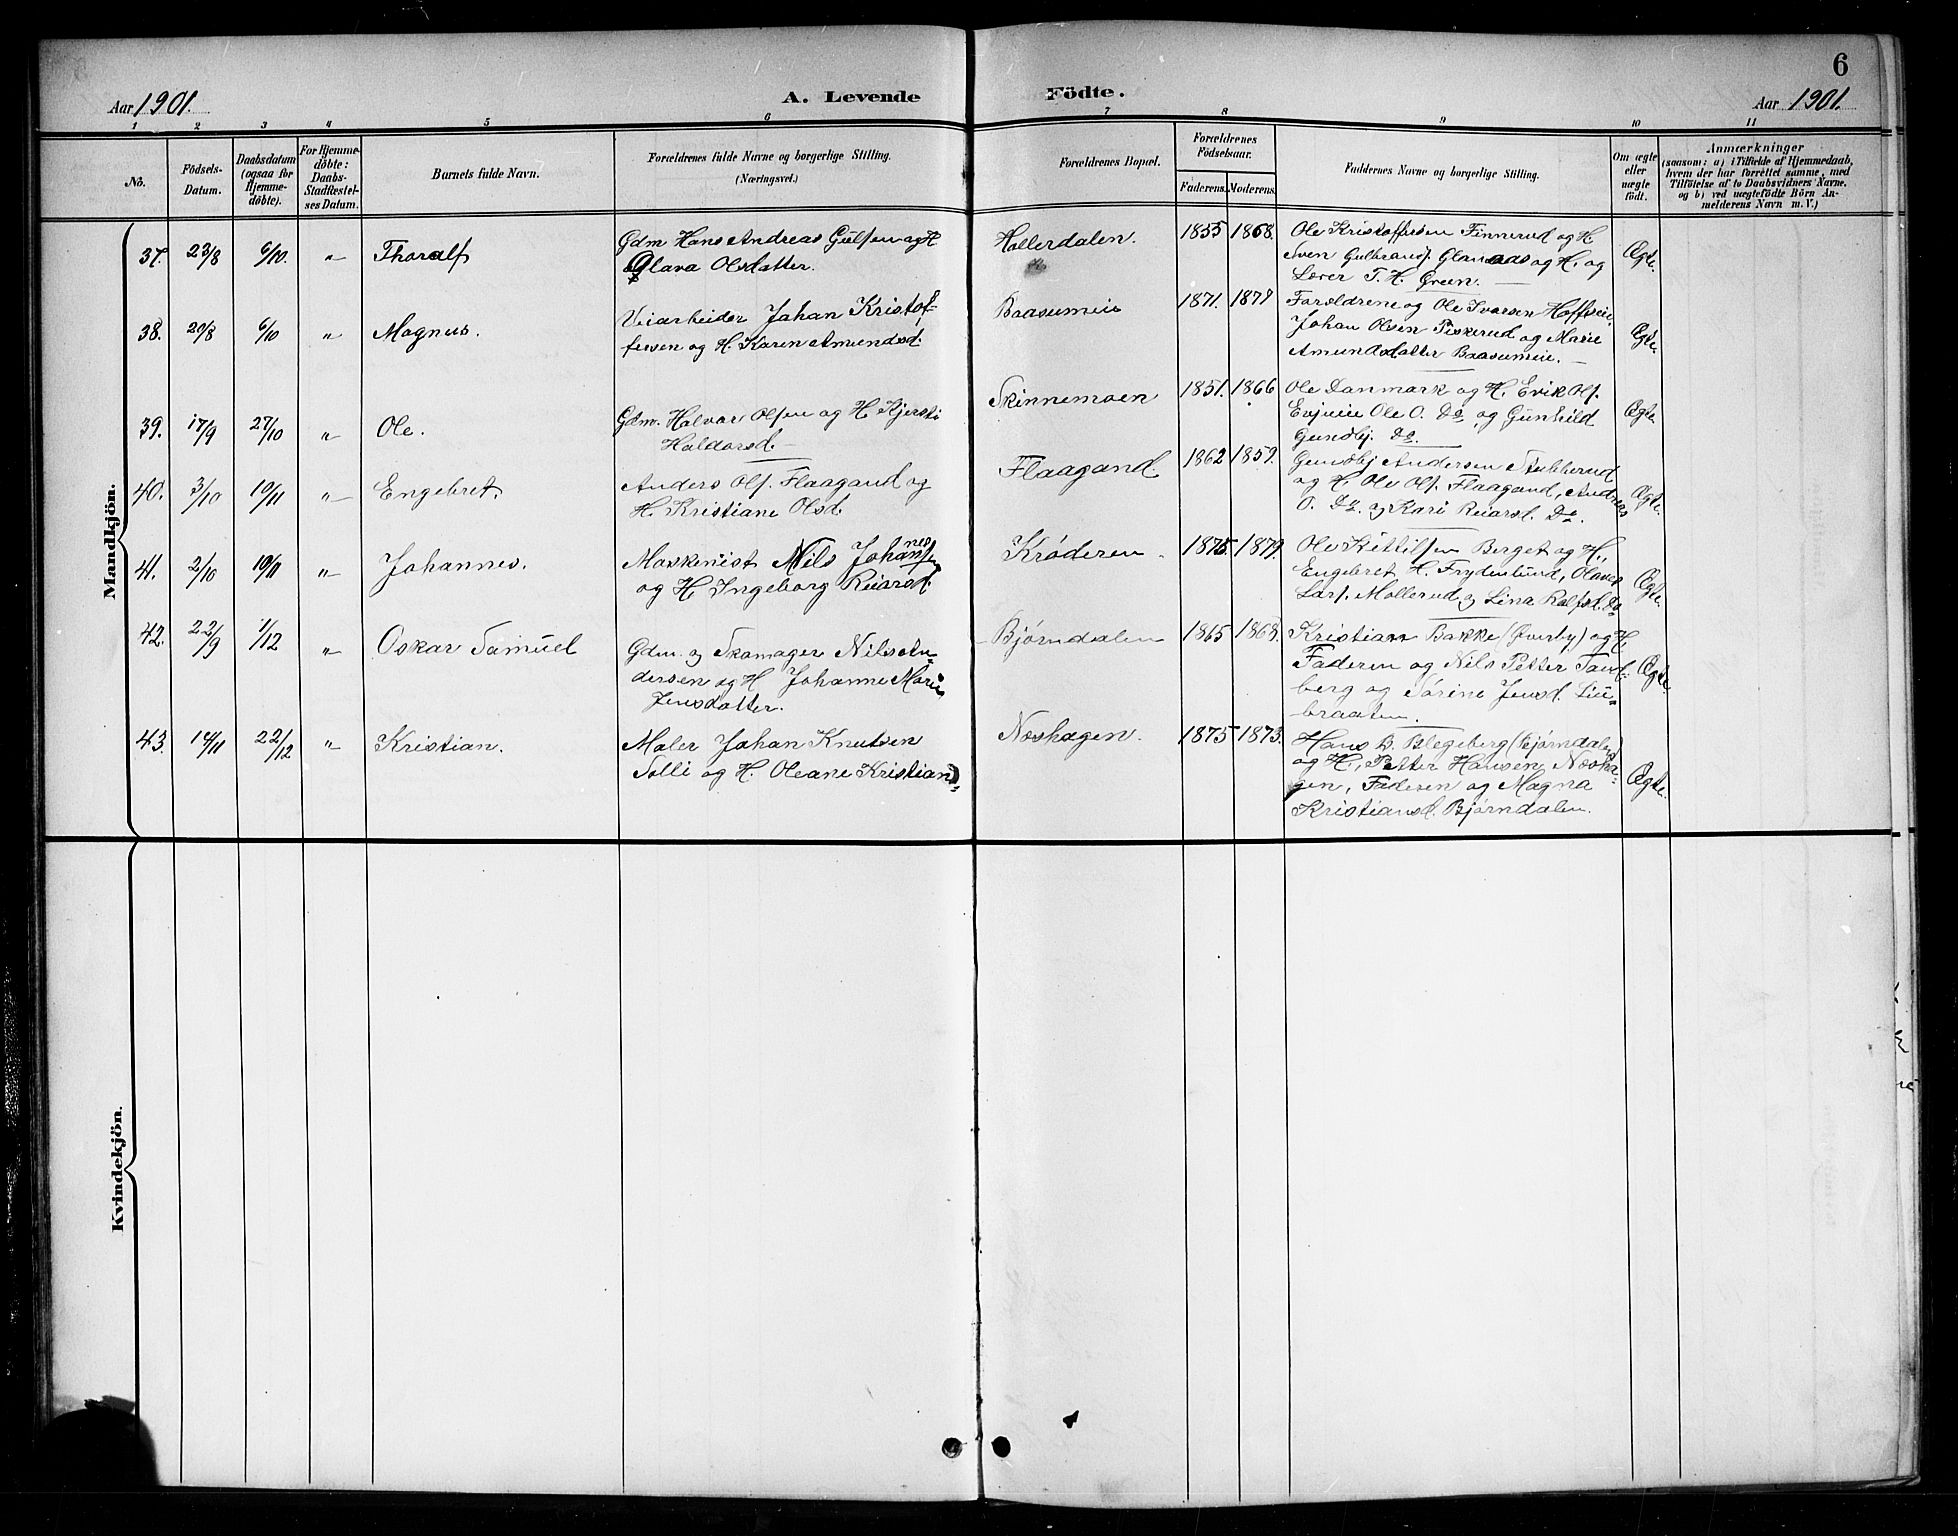 6
Aar 1901. A. Levende Födte. Aar 1901.
1 2 3 4 5 6 7 8 9 10 11
No.
Födsels-
Datum.
Daabsdatum
(ogsaa for
Hjemme-
döbte).
For Hjemme-
döbte:
Daabs-
Stadfæstel-
ses Datum.
Barnets fulde Navn.
Forældrenes fulde Navne og borgerlige Stilling.
(Næringsvei.)
Forældrenes Bopæl.
Forældrenes
Födselsaar.
Faderens. Moderens.
Faddernes Navne og borgerlige Stilling.
Om ægte
eller
uægte
födt.
Anmærkninger
(saasom: a) i Tilfælde af Hjemmedaab,
hvem der har forrettet samme, med
Tilföielse af to Daabsvidners Navne,
og b) ved uægtefödte Börn An-
melderens Navn m. V.)
Mandkjön.
37. 23/8 6/10. " Thoralf
Gdm Hans Andreas Gulsen og H
Olava Olsdatter.
Hollerdalen. 1855 1868.
Ole Kristoffersen Finnerud og H
Sven Gulbrandsf. og H. og
Lærer T. H. Green.
Ægte.
38. 20/8 6/10 " Magnus.
Veiarbeider Johan Kristof-
fersen og H. Karen Amundsd.
Baasumeie 1871. 1879
Forældrene og Ole Ivarsen Hoffseie,
Johan Olsen Piskerud og Marie
Amundsdatter Baasumeie.
Ægte.
39. 17/9 27/10 " Ole.
Gdm. Halvor Olsen og H Kjersti
Haldorsd.
Skinnemoen 1851. 1866
Ole Danmark og H. Erik Olf.
Enjueie Ole O. Do, og Gunhild
Gundbj. Do.
Ægte.
40. 3/10 10/11 " Engebret.
Anders Olf. Flaagand og
H. Kristiane Olsd.
Flaagand. 1862 1859.
Gundbj Andersen Stubberud
og H. Ole Olf. Flaagand, Andreas
O. Do. og Kari Reiarsd. Do.
Ægte.
41. 2/10 10/11 " Johannes.
Maskinist Nils Johannessen
og H. Ingeborg Reiarsd.
Krøderen 1875. 1879.
Ole Kittilsen Berget og H.,
Engebret H. Frydenlund, Olaves
Larf. Mollerud og Lina Rolfsd. Do
Ægte.
42. 22/9 1/12 " Oskar Samuel
Gdm. og Skomager Nils An-
dersen og H Johanne Marie
Jensdatter.
Bjørndalen 1865 1868.
Kristian Bakke (Øverby) og H
Faderen og Nils Petter Tand-
berg og Sørine Jensd. Liu-
braaten.
Ægte.
43. 14/11 22/12 " Kristian.
Maler Johan Knutsen
Solli og H. Oleane Kristian
Næshagen. 1875 1873.
Hans B. Blegeberg (Bjørndalen)
og H., Petter Hansen Næsha-
gen, Faderen og Magna
Kristiansd. Bjørndalen.
Ægte.
Kvindekjön.